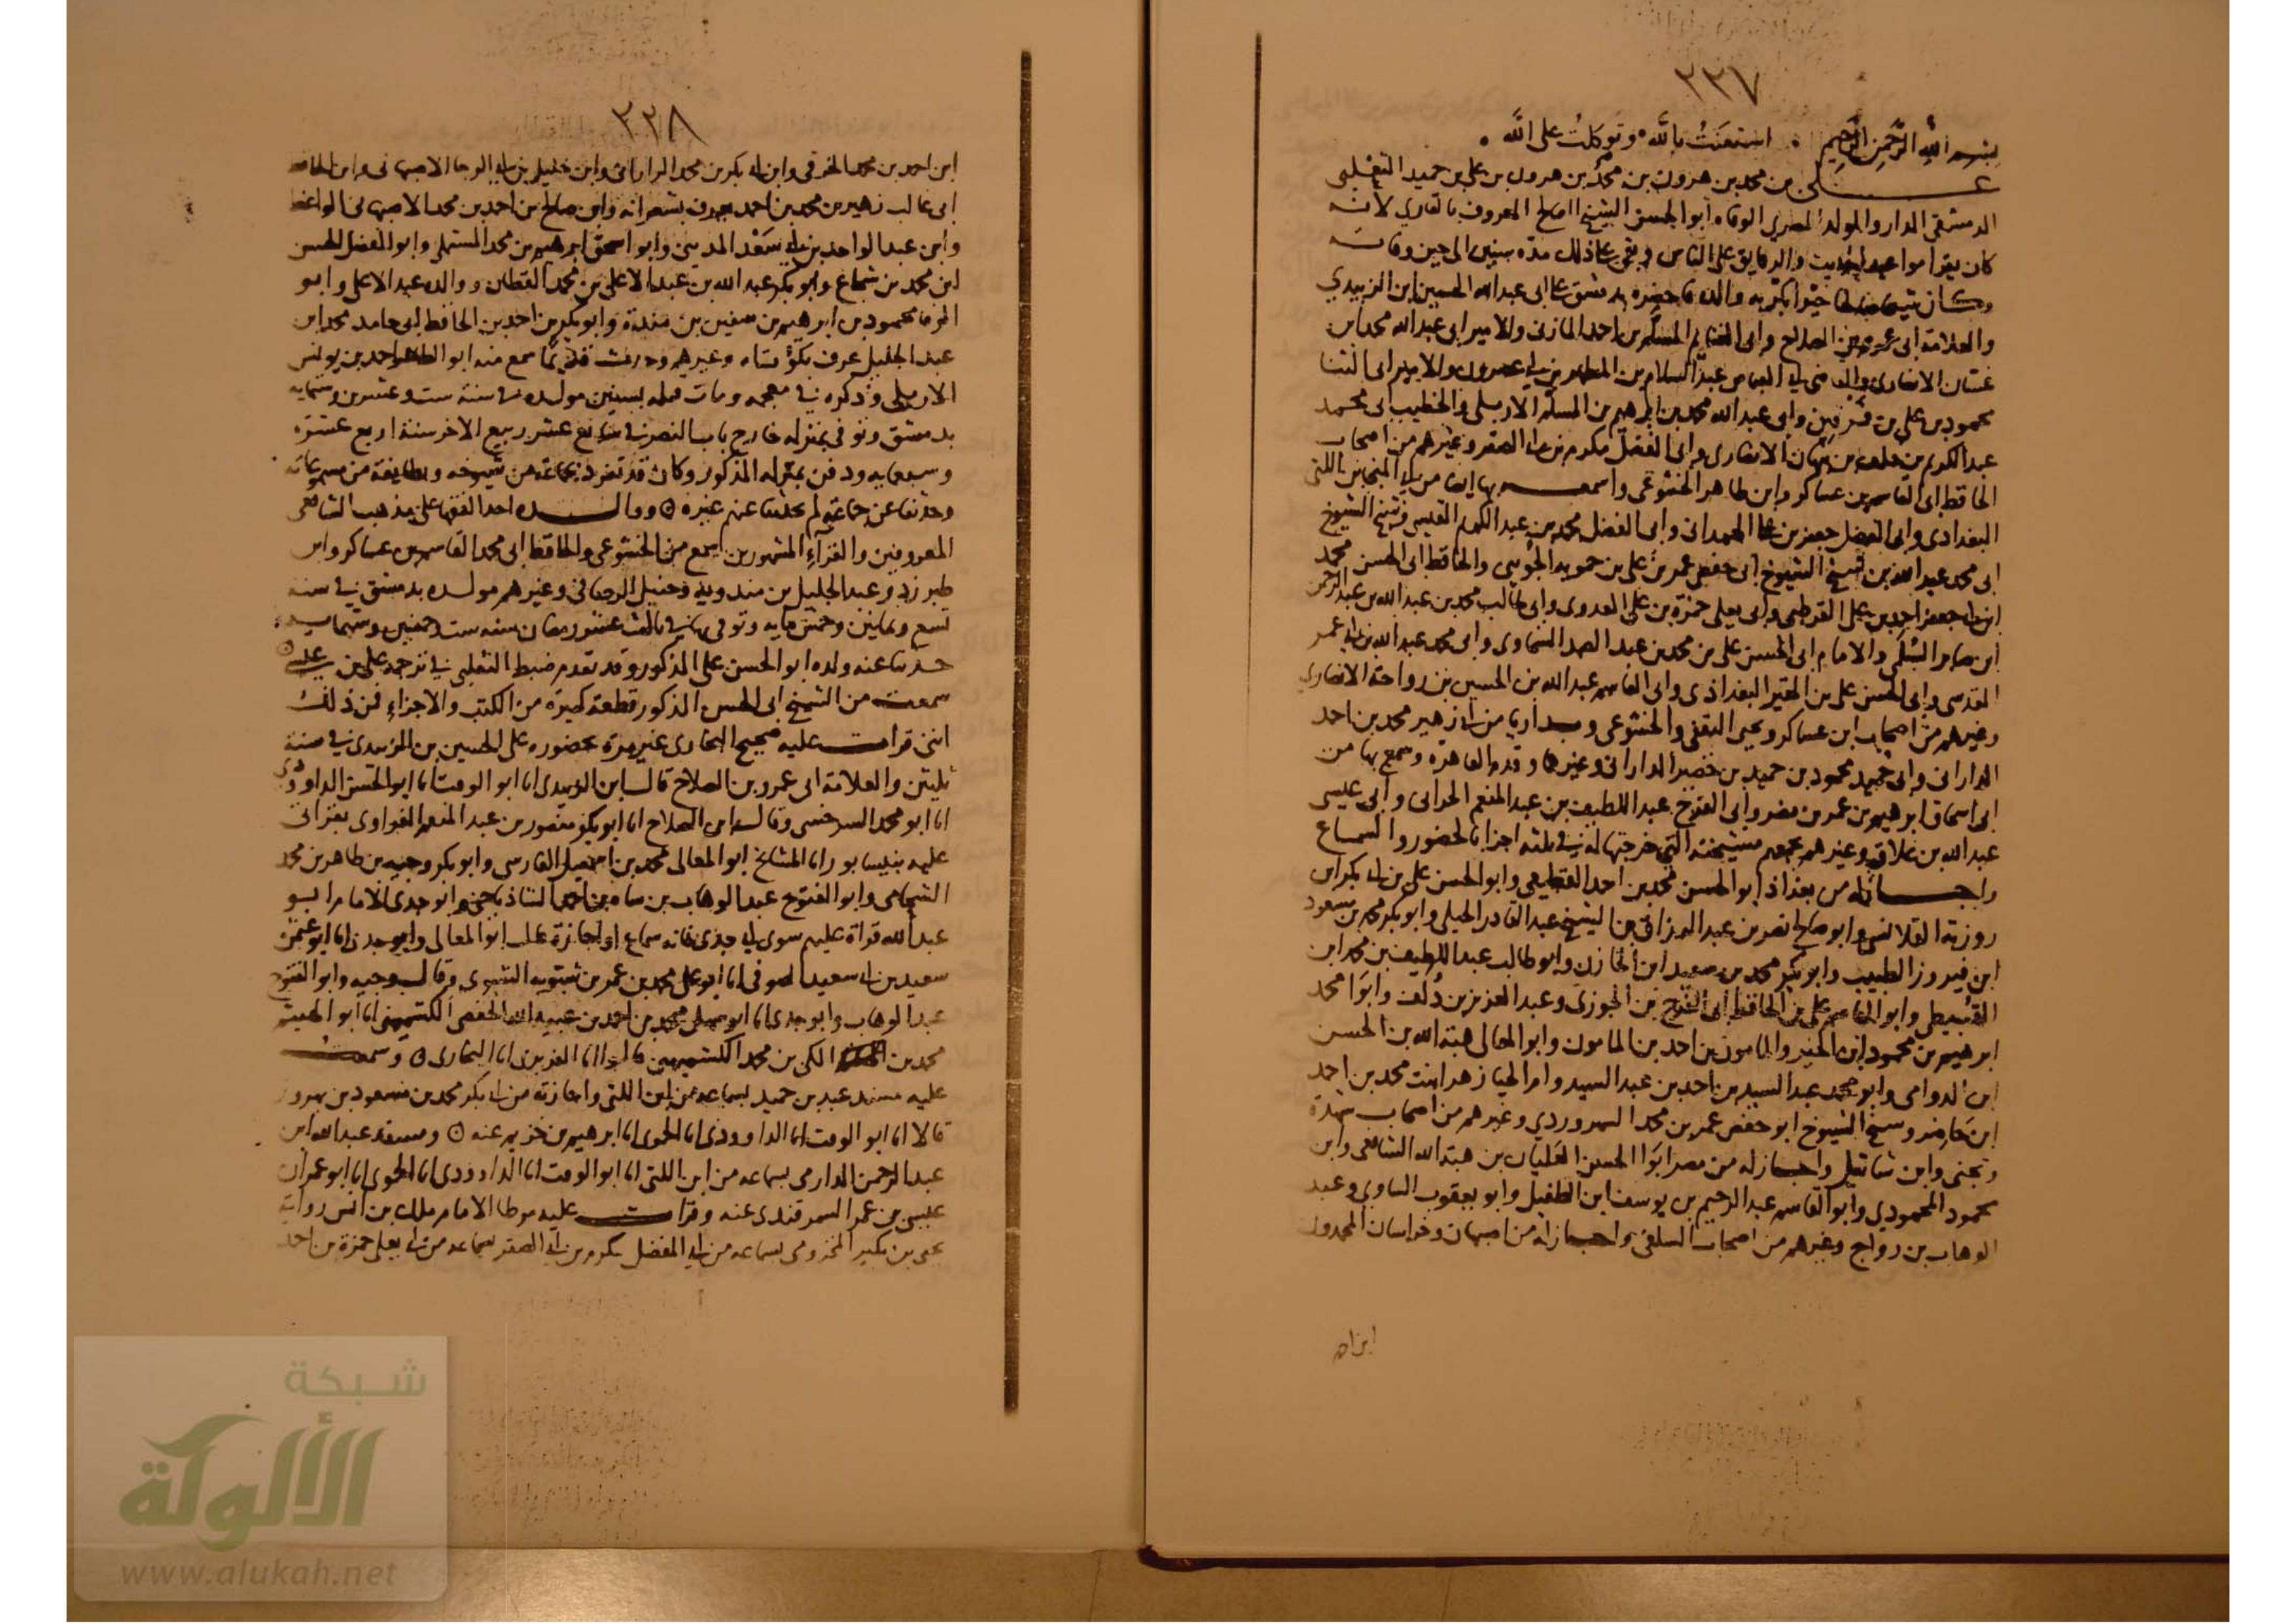 ٢٢٧
بسم الله الرَّحمن الرَّحيم . استعَنتُ بالله وتوكلتُ على الله .
علي بن محمد بن هرون بن محمد بن هرون بن علي بن حميد الثعلبي
الدمشقي الدار والمولد المصري الوفاه أبو الحسن الشيخ الصالح المعروف بالقاري لأنه
كان يقرا مواعيد الحديث والرقايق على الناس وبقى على ذلك مدة سنين الى حين وفاته
وكان شيخا خيرا بكر به والده فاحضره بدمشق على ابى عبد الله الحسين ابن الزبيدي
والعلامة ابى عمرو بن الصلاح وابى الغنايم المسلم بن احمد المازنى والامير ابى عبد الله محمد ابن
غسان الانصارى والقاضى ابى العباس عبد السلام بن المطهر بن ابى عصرون والامير ابى الثنا
محمود بن على بن قرقين وابى عبد الله محمد بن ابرهيم بن المسلم الاربلى والخطيب ابى محمد
عبد الكريم بن خلف بن نبهان الانصارى وابى الفضل مكرم بن ابى الصقر وغيرهم من اصحاب
الحافظ ابى القاسم بن عساكر وابن طاهر الخشوعى واسمعه بها ايضا من ابى المنجا بن اللتى
البغدادى وابى الفضل جعفر بن على الهمدانى وابى الفضل محمد بن عبد الكريم القيسى وشيخ الشيوخ
ابى محمد عبد الله بن شيخ الشيوخ ابى حفص عمر بن على بن حمويه الجوينى والحافظ ابى الحسن محمد
ابن ابى جعفر احمد بن على القرطبى وابى يعلى حمزة بن على العدوى وابى طالب محمد بن عبد الله بن عبد الرحمن
ابن صابر السُّلَمى والامام ابى الحسن على بن محمد بن عبد الصمد السخاوى وابى محمد عبد الله بن ابى عمر
المقدسى وابى الحسن على بن المقير البغدادى وابى القاسم عبد الله بن الحسين بن رواحة الانصاري
وغيرهم من اصحاب ابن عساكر ويحيى الثقفى والخشوعى وبداريا من ابى زهير محمد بن احمد
الدارانى وابى محمود بن حميد بن خضير الدارانى وغيرهما وقدم القاهرة وسمع بها من
ابى اسحاق ابرهيم بن عمر بن مضر وابى الفرج عبد اللطيف بن عبد المنعم الحرانى وابى عيسى
عبد الله بن علاق وغيرهم مشيخته التى خرجتها له فى ثلثه اجزا بالحضور والسماع
واجاز له من بغداد ابو الحسن محمد بن احمد القطيعى وابو الحسن على بن ابى بكر ابن
روزبة القلانسى وابو صالح نصر بن عبد الرزاق بن الشيخ عبد القادر الجيلى وابو بكر محمد بن مسعود
ابن فيروز الطبيب وابو بكر محمد بن سعيد ابن الخازن وابو طالب عبد اللطيف بن محمد ابن
القُبيطى وابو القاسم على بن الحافظ ابى الفرج بن الجوزى وعبد العزيز بن دُلَف وابوا محمد
ابرهيم بن محمود ابن الخير والمامون بن احمد بن المامون وابو المعالى هبة الله بن الحسن
ابن الدوامى وابو محمد عبد السيد بن احمد بن عبد السيد وام الحيا زهرا بنت محمد بن احمد
ابن حاضر وشيخ الشيوخ ابو حفص عمر بن محمد السهروردي وغيرهم من اصحاب شهدة
وتجنى وابن شاتيل واجاز له من مصر ابوا الحسن العليان بن هبة الله الشافعى وابن
محمود المحمودي وابو القاسم عبد الرحيم بن يوسف ابن الطفيل وابو يعقوب الساوي وعبد
الوهاب بن رواج وغيرهم من اصحاب السلفى واجاز له من اصبهان وخراسان المحمدون
٢٢٨
ابن احمد بن محمد الخرقى وابن ابى بكر بن محمد الرارانى وابن خليل بن ابى الرجا الاصبهانى وابن الحافظ
ابى غالب زهير بن محمد بن احمد عرف بشعرانه وابن صالح بن احمد بن محمد الاصبهانى الواعظ
وابن عبد الواحد بن ابى سَعْد المدينى وابو اسحق ابرهيم بن محمد المستملى وابو الفضل الحسن
ابن محمد بن شجاع وابو بكر عبد الله بن عبد الاعلى بن محمد القطان ووالده عبد الاعلى وابو
الوفا محمود بن ابرهيم بن سفين بن مندة وابو بكر بن احمد بن الحافظ ابى حامد محمد ابن
عبد الجليل عرف بكوتاه وغيرهم وحدث قديما سمع منه ابو الطاهر احمد بن يونس
الاربلى وذكره فى معجمه ومات قبله بسنين مولده فى سنة ست وعشرين وستمايه
بدمشق وتوفى بمنزله خارج باب النصر فى سابع عشر ربيع الاخر سنة اربع عشرة
وسبعمايه ودفن بمنزله المذكور وكان قد تفرد بجماعة من شيوخه وبطايفة من مسموعاته
وحدثنا عن جماعة لم يحدثنا عنهم غيره ٥ ووالده احد الفقها على مذهب الشافعى
المعروفين والقرآء المشهورين سمع من الخشوعى والحافظ ابى محمد القاسم بن عساكر وابن
طبرزد وعبد الجليل بن مندويه وحنبل الرصافى وغيرهم مولده بدمشق فى سنه
تسع وثمانين وخمس مايه وتوفى بها فى ثالث عشر رمضان سنه ست وخمسين وستمايه
حدثنا عنه ولده ابو الحسن على المذكور وقد تقدم ضبط الثعلبى فى ترجمة على بن على ٥
سمعت من الشيخ ابى الحسن المذكور قطعة كبيرة من الكتب والاجزاء فمن ذلك
اننى قرات عليه صحيح البخارى غير مرة بحضوره على الحسين بن الزبيدى فى سنة
ثلثين والعلامة ابى عمرو بن الصلاح قال ابن الزبيدى انا ابو الوقت انا ابو الحسن الداودى
انا ابو محمد السرخسى وقال ابن الصلاح انا ابو بكر منصور بن عبد المنعم الفراوى بقراتى
عليه بنيسابور انا المشايخ ابو المعالى محمد بن اسمعيل الفارسى وابو بكر وجيه بن طاهر بن محمد
الشحامى وابو الفتوح عبد الوهاب بن شاه بن احمد الشاذياخى وابو جدى الامام ابو
عبد الله قراة عليهم سوى ابى جدى فانه سماع او اجازة قال ابو المعالى وابو جدى انا ابو عثمن
سعيد بن ابى سعيد الصوفى انا ابو على محمد بن عمر بن شبويه الشبوى وقال وجيه وابو الفتوح
عبد الوهاب وابو جدى انا ابو سهل محمد بن احمد بن عبيد الله الحفصى الكشميهنى انا ابو الهيثم
محمد بن المكى بن محمد الكشميهنى قالوا انا الفربرى انا البخارى ٥ وسمعت
عليه مسند عبد بن حميد بسماعه من ابن اللتى واجازته من ابى بكر محمد بن مسعود بن بهروز
قالا انا ابو الوقت انا الداوودى انا الحموى انا ابرهيم بن خزيم عنه ٥ ومسند عبد الله ابن
عبد الرحمن الدارمى بسماعه من ابن اللتى انا ابو الوقت انا الداوودى انا الحموى انا ابو عمران
عيسى بن عمر السمرقندى عنه وقرات عليه موطا الامام ملك بن انس رواية
يحيى بن بكير المخزومى بسماعه من ابى المفضل مكرم بن ابى الصقر بسماعه من ابى يعلى حمزة بن احمد
شبكة
الألوكة
www.alukah.net